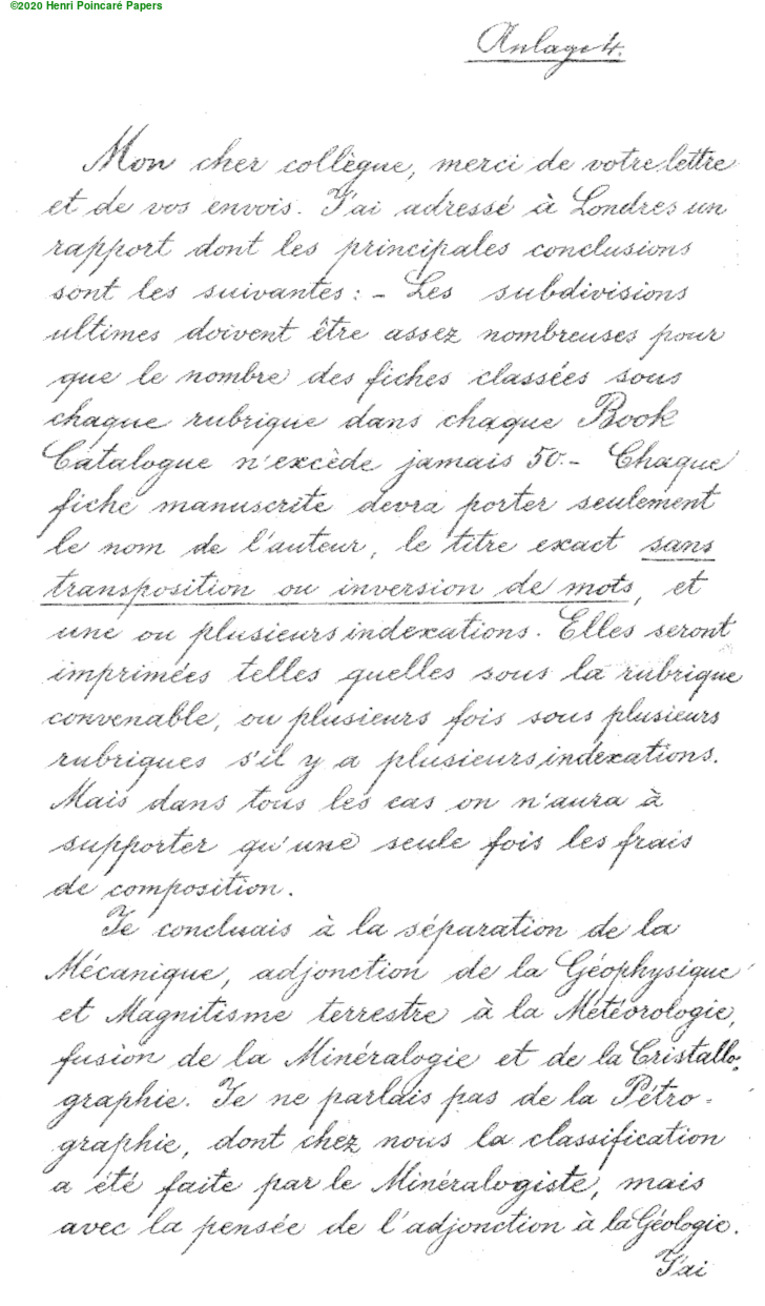 ©2020 Henri Poincaré Papers
Anlage 4.
Mon cher collègue, merci de votre lettre
et de vos envois. J'ai adressé à Londres un
rapport dont les principales conclusions
sont les suivantes : - Les subdivisions
ultimes doivent être assez nombreuses pour
que le nombre des fiches classées sous
chaque rubrique dans chaque Book
Catalogue n'excède jamais 50.- Chaque
fiche manuscrite devra porter seulement
le nom de l'auteur, le titre exact sans
transposition ou inversion de mots, et
une ou plusieurs indexations. Elles seront
imprimées telles quelles sous la rubrique
convenable, ou plusieurs fois sous plusieurs
rubriques s'il y a plusieurs indexations.
Mais dans tous les cas on n'aura à
supporter qu'une seule fois les frais
de composition.
Je concluais à la séparation de la
Mécanique, adjonction de la Géophysique
et Magnitisme terrestre à la Météorologie,
fusion de la Minéralogie et de la Cristallo-
graphie. Je ne parlais pas de la Pétro-
graphie, dont chez nous la classification
a été faite par le Minéralogiste, mais
avec la pensée de l'adjonction à la Géologie.
J'ai